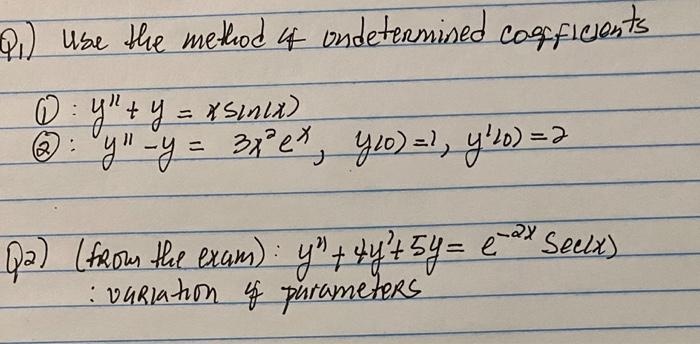 Q1) Use the method of undetermined coefficients
①: y" + y = x sin(x)
②: y" - y = 3x²eˣ, y(0) = 1, y'(0) = 2
Q2) (from the exam): y" + 4y' + 5y = e⁻²ˣ Sec(x)
: variation of parameters